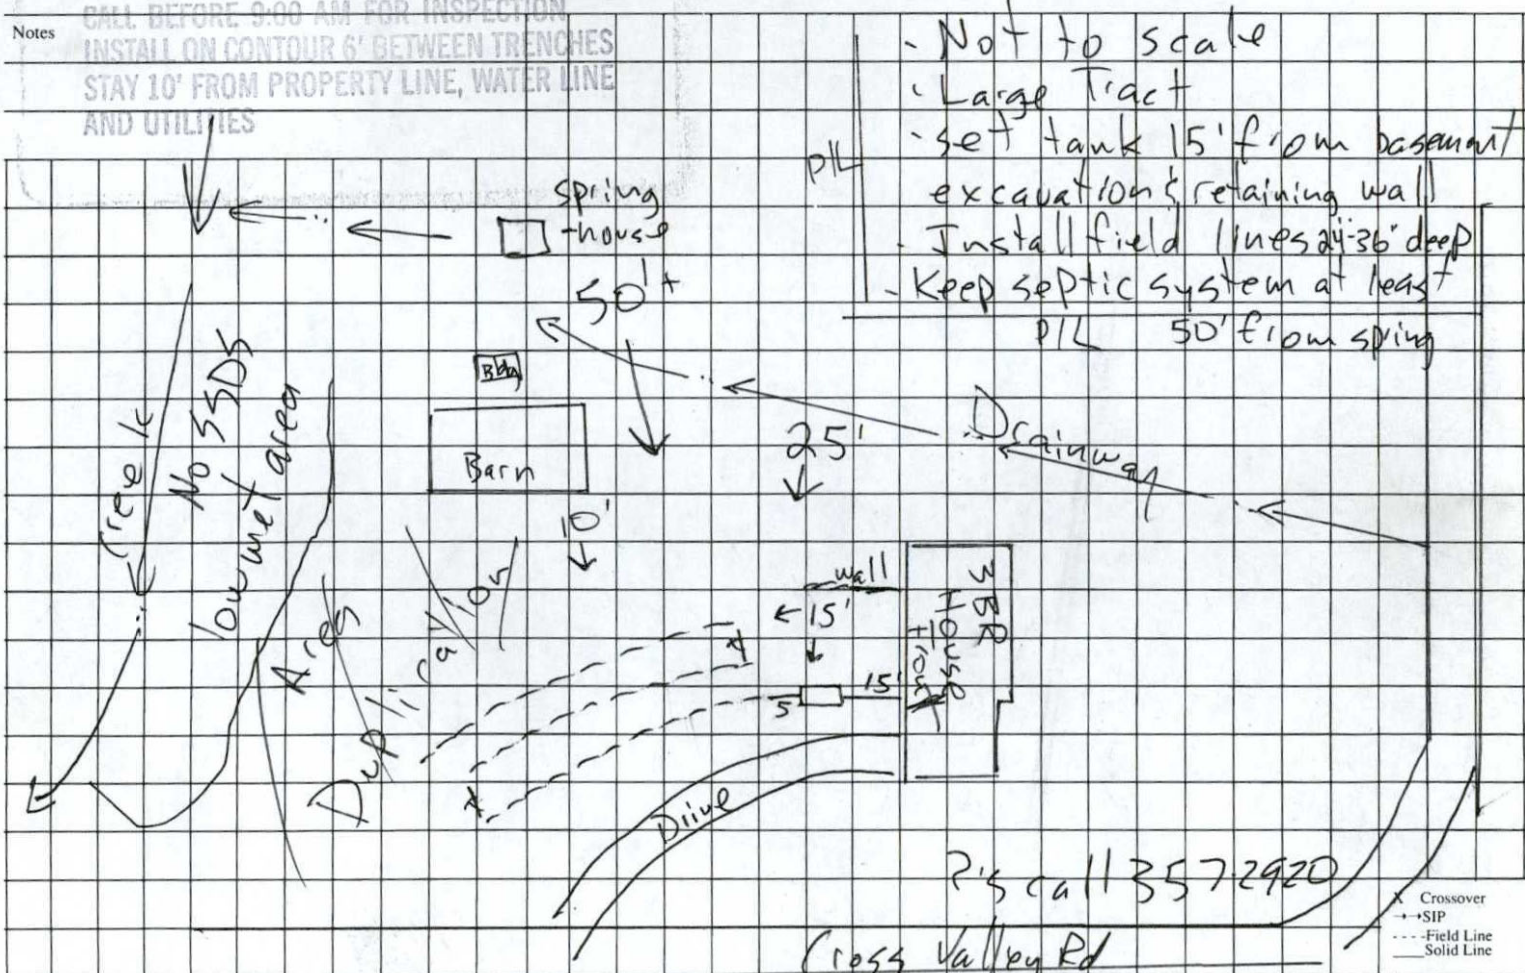 Notes
CALL BEFORE 9:00 AM FOR INSPECTION
INSTALL ON CONTOUR 6' BETWEEN TRENCHES
STAY 10' FROM PROPERTY LINE, WATER LINE
AND UTILITIES
- Not to scale
- Large Tract
- set tank 15' from basement
excavation & retaining wall
- Install field lines 24-36" deep
- Keep septic system at least
50' from spring
P/L
P/L
spring
-house
50'+
Bldg
Barn
10'
25'
Drainway
Creek
No SSDS
low wet area
Duplication
Area
wall
15'
15'
5
3 BR
House
Front
Drive
?'s call 357-2920
Cross Valley Rd
X Crossover
SIP
Field Line
Solid Line